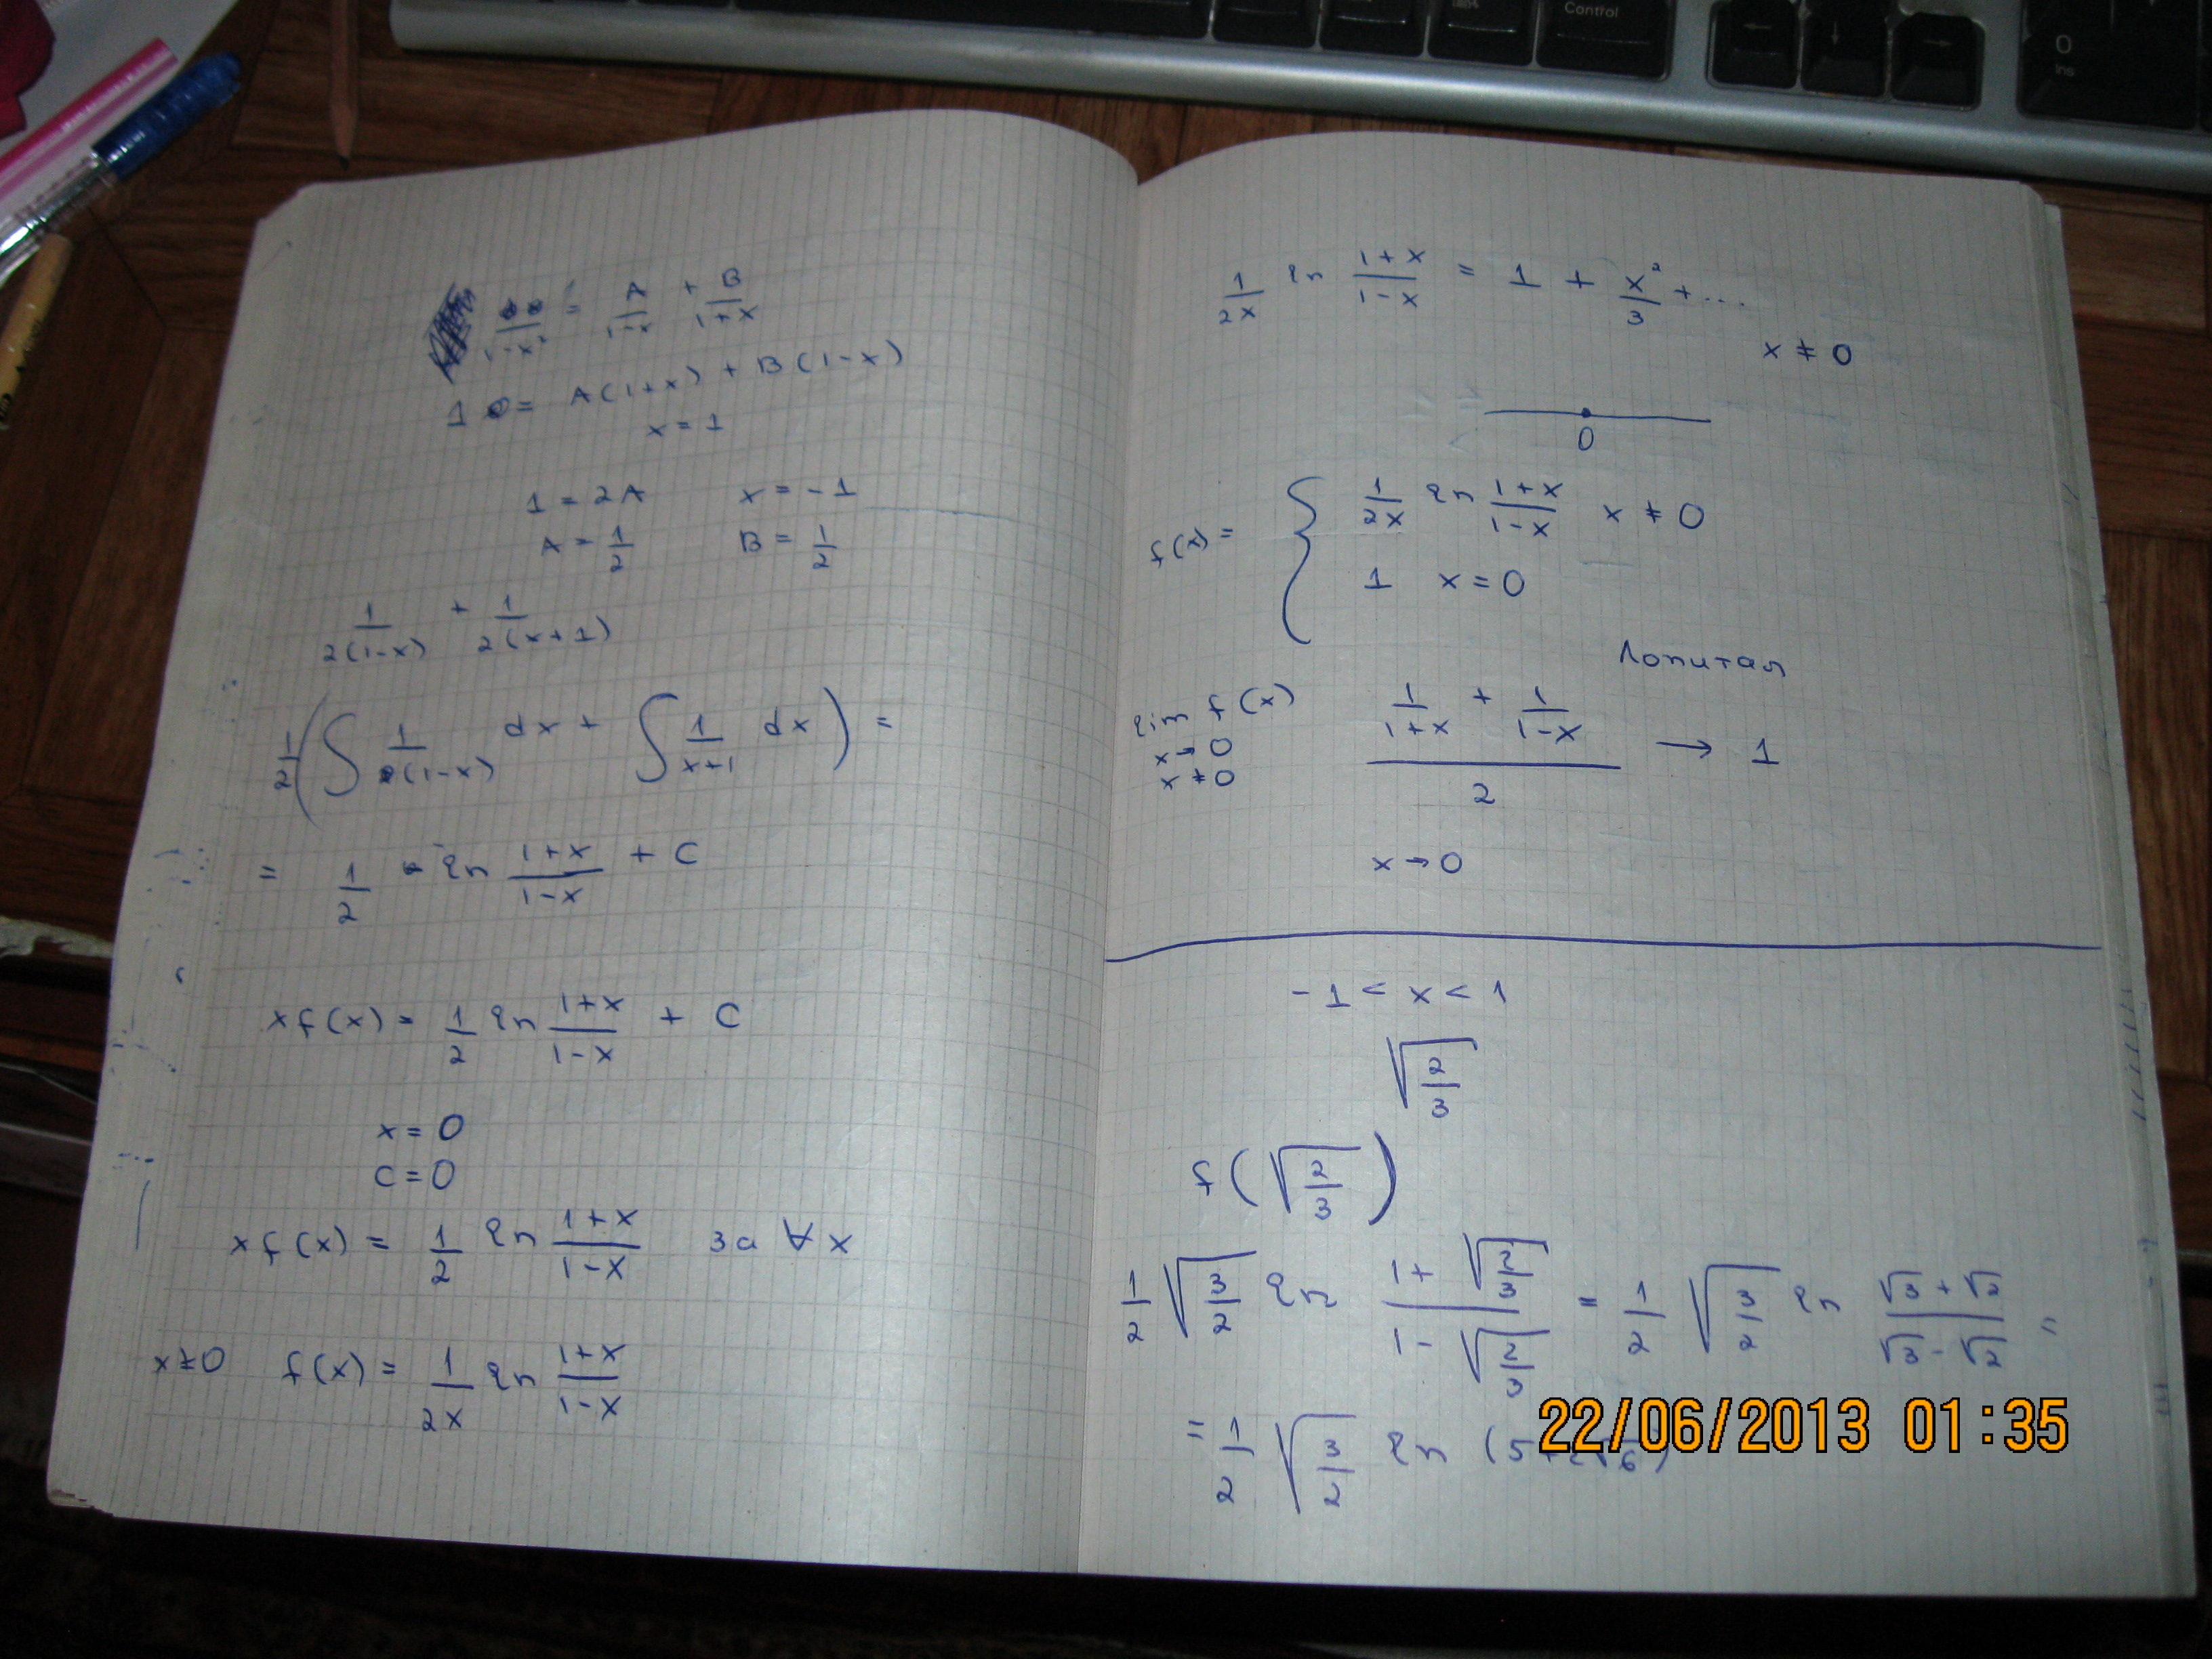 Control
← ↓ →
0
Ins
1/(1-x²) = A/(1-x) + B/(1+x)
1 = A(1+x) + B(1-x)
x = 1
1 = 2A x = -1
A = 1/2 B = 1/2
1/(2(1-x)) + 1/(2(x+1))
1/2 (∫ 1/(1-x) dx + ∫ 1/(x+1) dx) =
= 1/2 ln (1+x)/(1-x) + C
x f(x) = 1/2 ln (1+x)/(1-x) + C
x = 0
C = 0
x f(x) = 1/2 ln (1+x)/(1-x) за ∀ x
x ≠ 0 f(x) = 1/(2x) ln (1+x)/(1-x)
1/(2x) ln (1+x)/(1-x) = 1 + x²/3 + ...
x ≠ 0
0
f(x) = { 1/(2x) ln (1+x)/(1-x) x ≠ 0
1 x = 0
Лопитал
lim f(x) x→0 x≠0 (1/(1+x) + 1/(1-x))/2 → 1
x → 0
-1 < x < 1
√(2/3)
f(√(2/3))
1/2 √(3/2) ln (1+√(2/3))/(1-√(2/3)) = 1/2 √(3/2) ln (√3+√2)/(√3-√2) =
= 1/2 √(3/2) ln (5+2√6)
22/06/2013 01:35